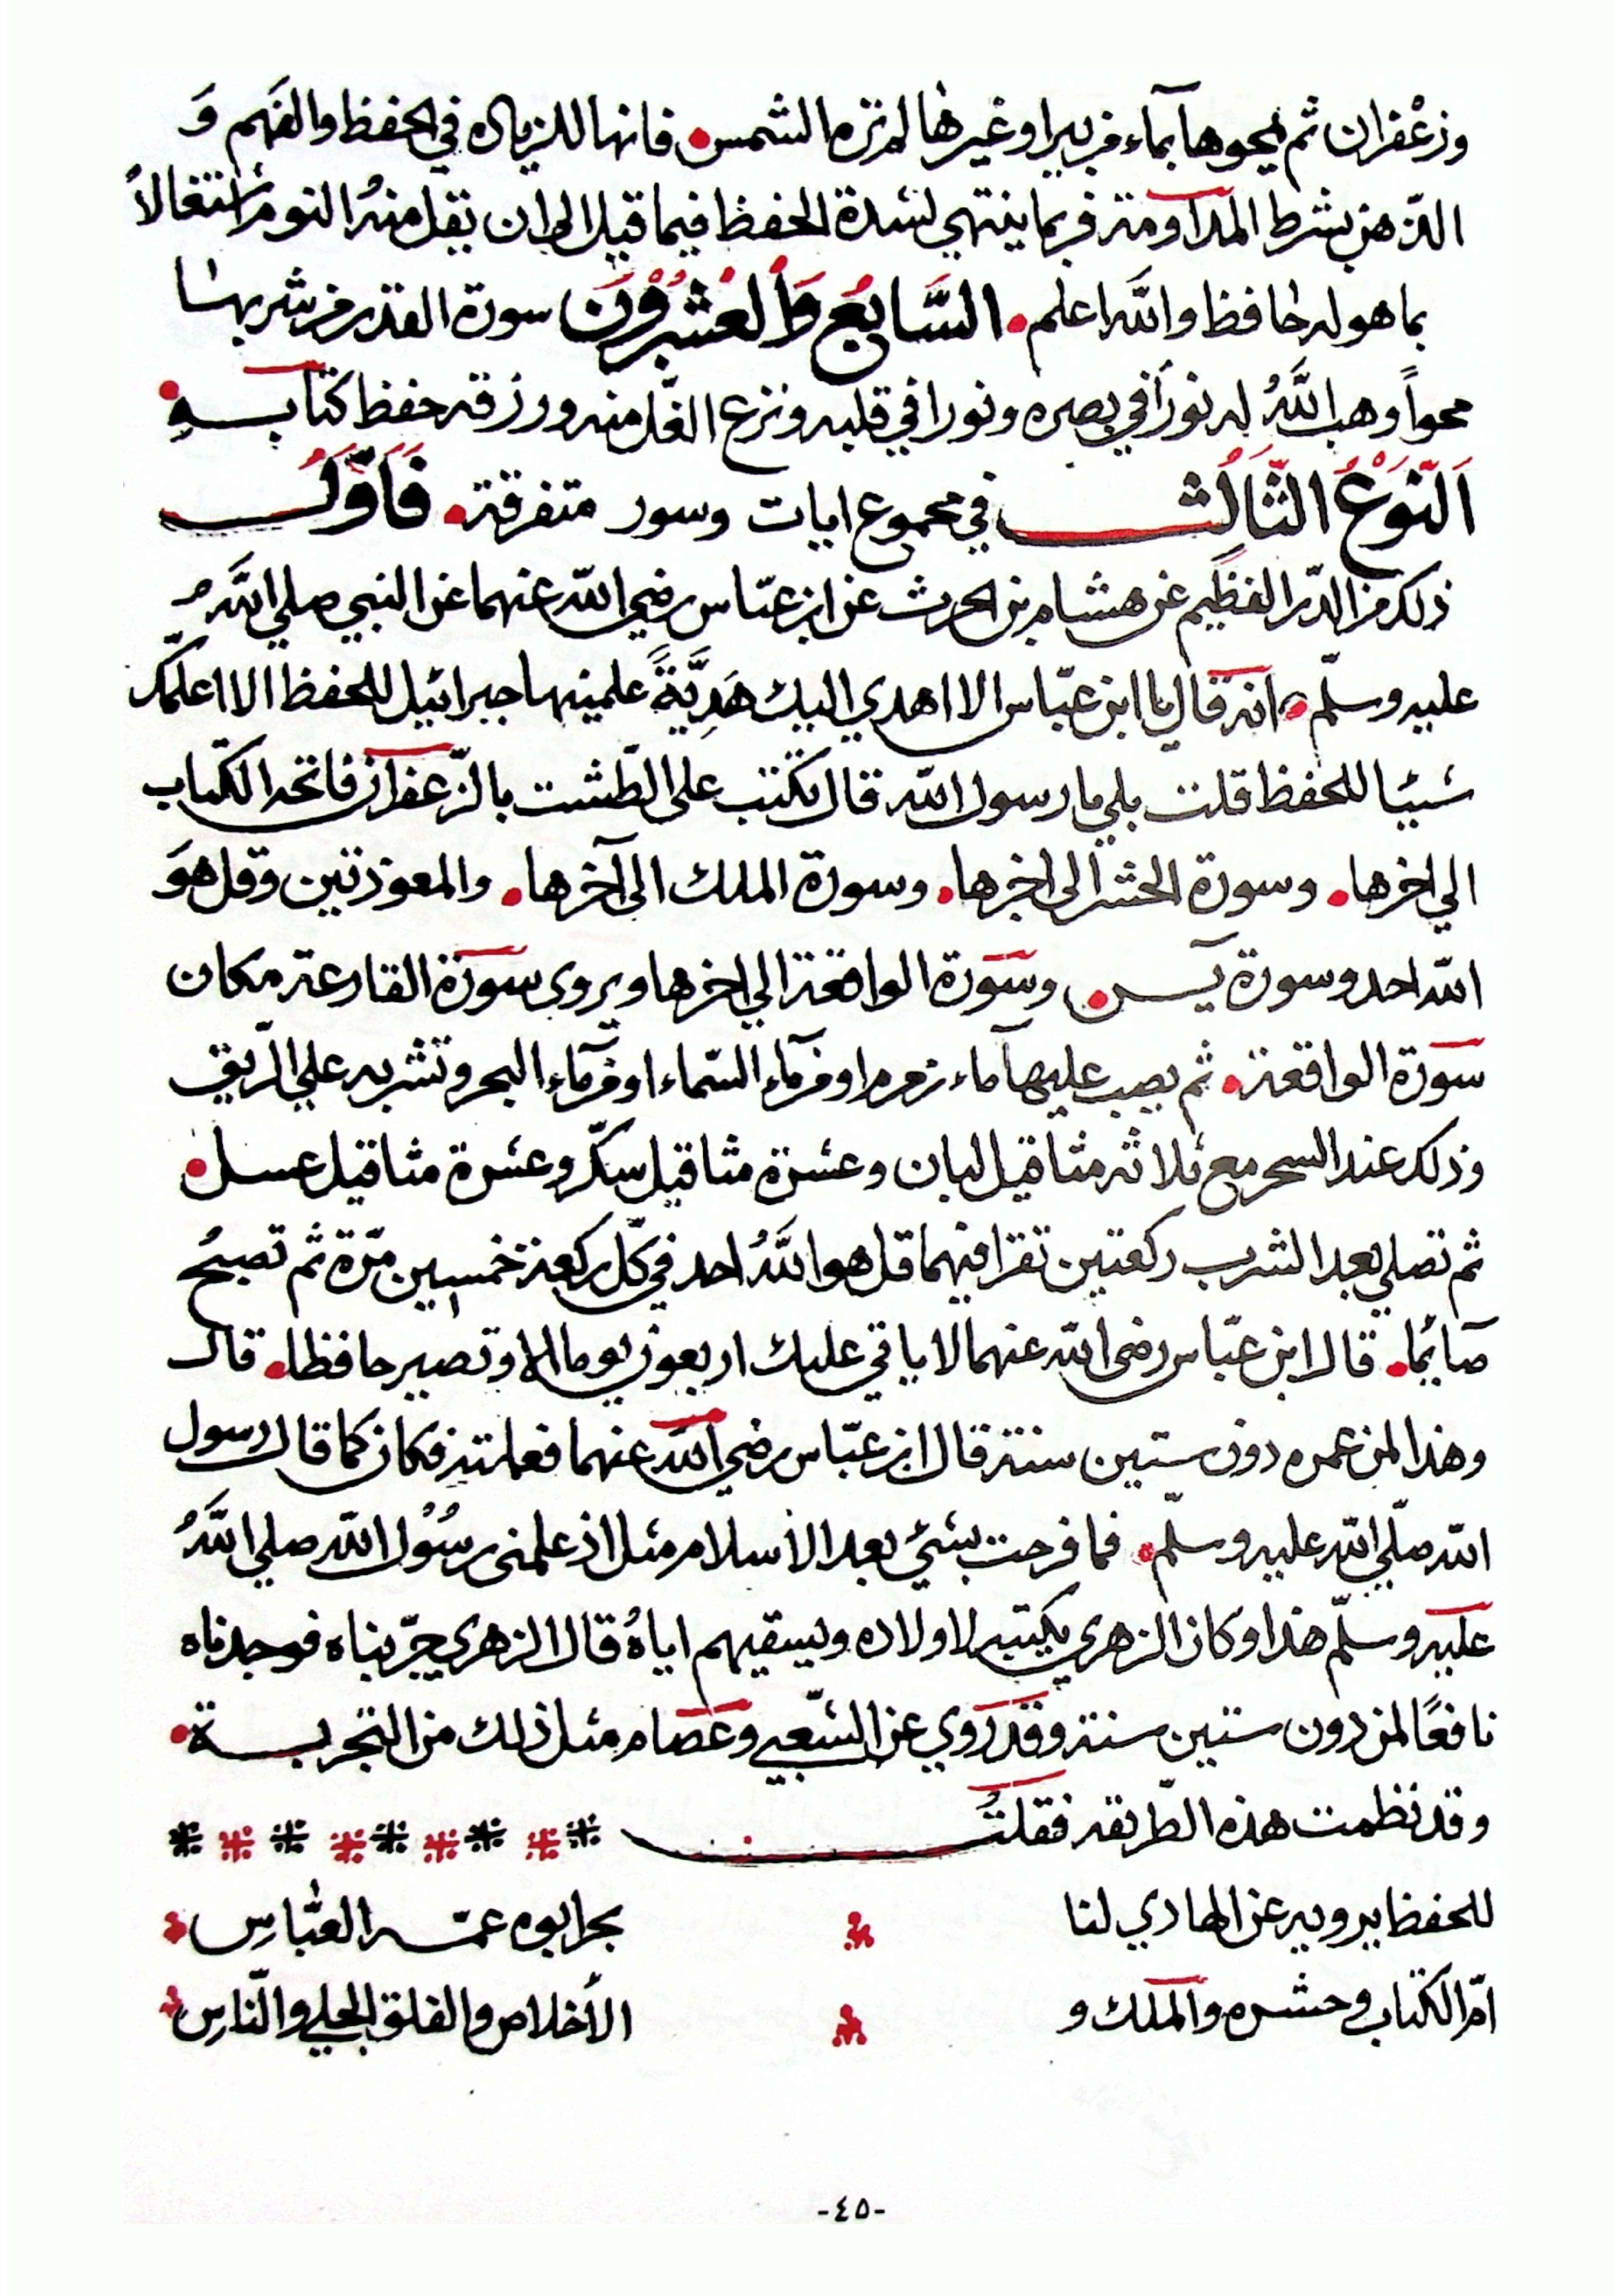 وزعْفران ثم يمحوها بمآء من بيرا وغيرها لم تره الشمس فانها للزياده في الحفظ والفهم وَ
الذهن بشرط المدآومة فربما ينتهي لشدة الحفظ فيما قيل الى ان يقل منهُ النوم اشتغالاً
بما هو له حافظ والله اعلم السَّابِعُ وَاْلعِشْرُوْنَ سورة القدر من شربها
محواً وهب اللَّهُ له نوراً في بصره ونورا في قلبه ونزع الغلّ منه ورزقه حفظ كتابــهِ
اَلنَّوْعُ الثَّالِثُ في مجموع ايات وسور متفرقة فَاَوَّلُ
ذلك من الدّر النظيم عن هشام بن الحرث عن ابن عبّاس رضي اللّه عنهما عن النبي صلي اللَّهُ
عليه وسلّم انه قال يا ابن عبّاس الا اهدي اليك هَدِيَّةً علمنيها جبرائيل للحفظ الا اعلّمك
شيئا للحفظ قلت بلي يا رسول اللّه قال تكتب على الطّشت بالزّعفران فاتحه الكتاب
الي اخرها وسورة الحشر الى اخرها وسورة الملك الى آخرها والمعوذتين وقل هوَ
اللّه احد وسورة يس وسورة الواقعة الي اخرها ويروى سورة القارعة مكان
سورة الواقعة ثم يصب عليها مآء زمزم او من مآء السّماء او من مآء البحر وتشربه علي الرّيق
وذلك عند السحر مع ثلاثه مثاقيل لبان وعشرة مثاقيل سكّر وعشرة مثاقيل عسل
ثم تصلي بعد الشرب ركعتين تقرا فيهما قل هو اللَّهُ احد في كلّ ركعة خمسين مرّة ثم تصبحُ
صآئما قال ابن عبّاس رضى اللّه عنهما لا ياتي عليك اربعون يوما الا وتصير حافظا قال
وهذا لمن عمره دون ستين سنة قال ابن عبّاس رضي اللّه عنهما فعلمته فكان كما قال رسول
اللّه صلّي اللّه عليه وسلّم فما فرحت بشئ بعد الأسلام مثل اذ علمنى رسُوُل اللّه صلي اللَّهُ
عليه وسلّم هذا وكان الزهري يكتبه لاولاده ويسقيهم اياهُ قال الزهري جرّبناه فوجدناه
نافعًا لمن دون ستين سنة وقد روي عن الشّعبي وعصام مثل ذلك من التجربــة
وقد نظمت هذه الطّريقه فقلتُ
للحفظ يرويه عن الهادي لنا بحر ابوه عمّـه العبّاسِ
امّ الكتاب وحشره والملك و الأخلاص والفلق الجلي والنّاسِ
-٤٥-